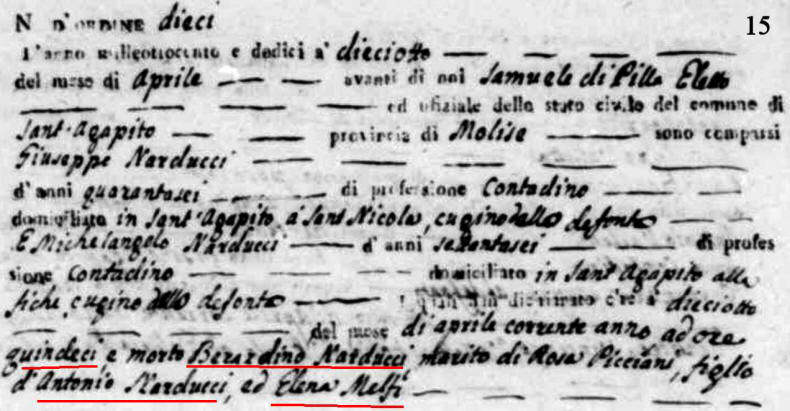 15
N D'ORDINE dieci
L'anno milleottocento e dodici a' dieciotto
del mese di Aprile avanti di noi Samuele di Pilla Eletto
ed ufiziale dello stato civile del comune di
Sant'Agapito provincia di Molise sono comparsi
Giuseppe Narducci
d'anni quarantasei di professione Contadino
domiciliato in Sant'Agapito a Sant Nicola, cugino dello defonto
E Michelangelo Narducci d'anni sessantasei di profes
sione Contadino domiciliato in Sant'Agapito alle
fiche, cugino dello defonto dichiarato dieciotto
del mese di aprile corrente anno ad ore
quindeci e morto Berardino Narducci marito di Rosa Picciani, figlio
d'Antonio Narducci, ed Elena Melfi